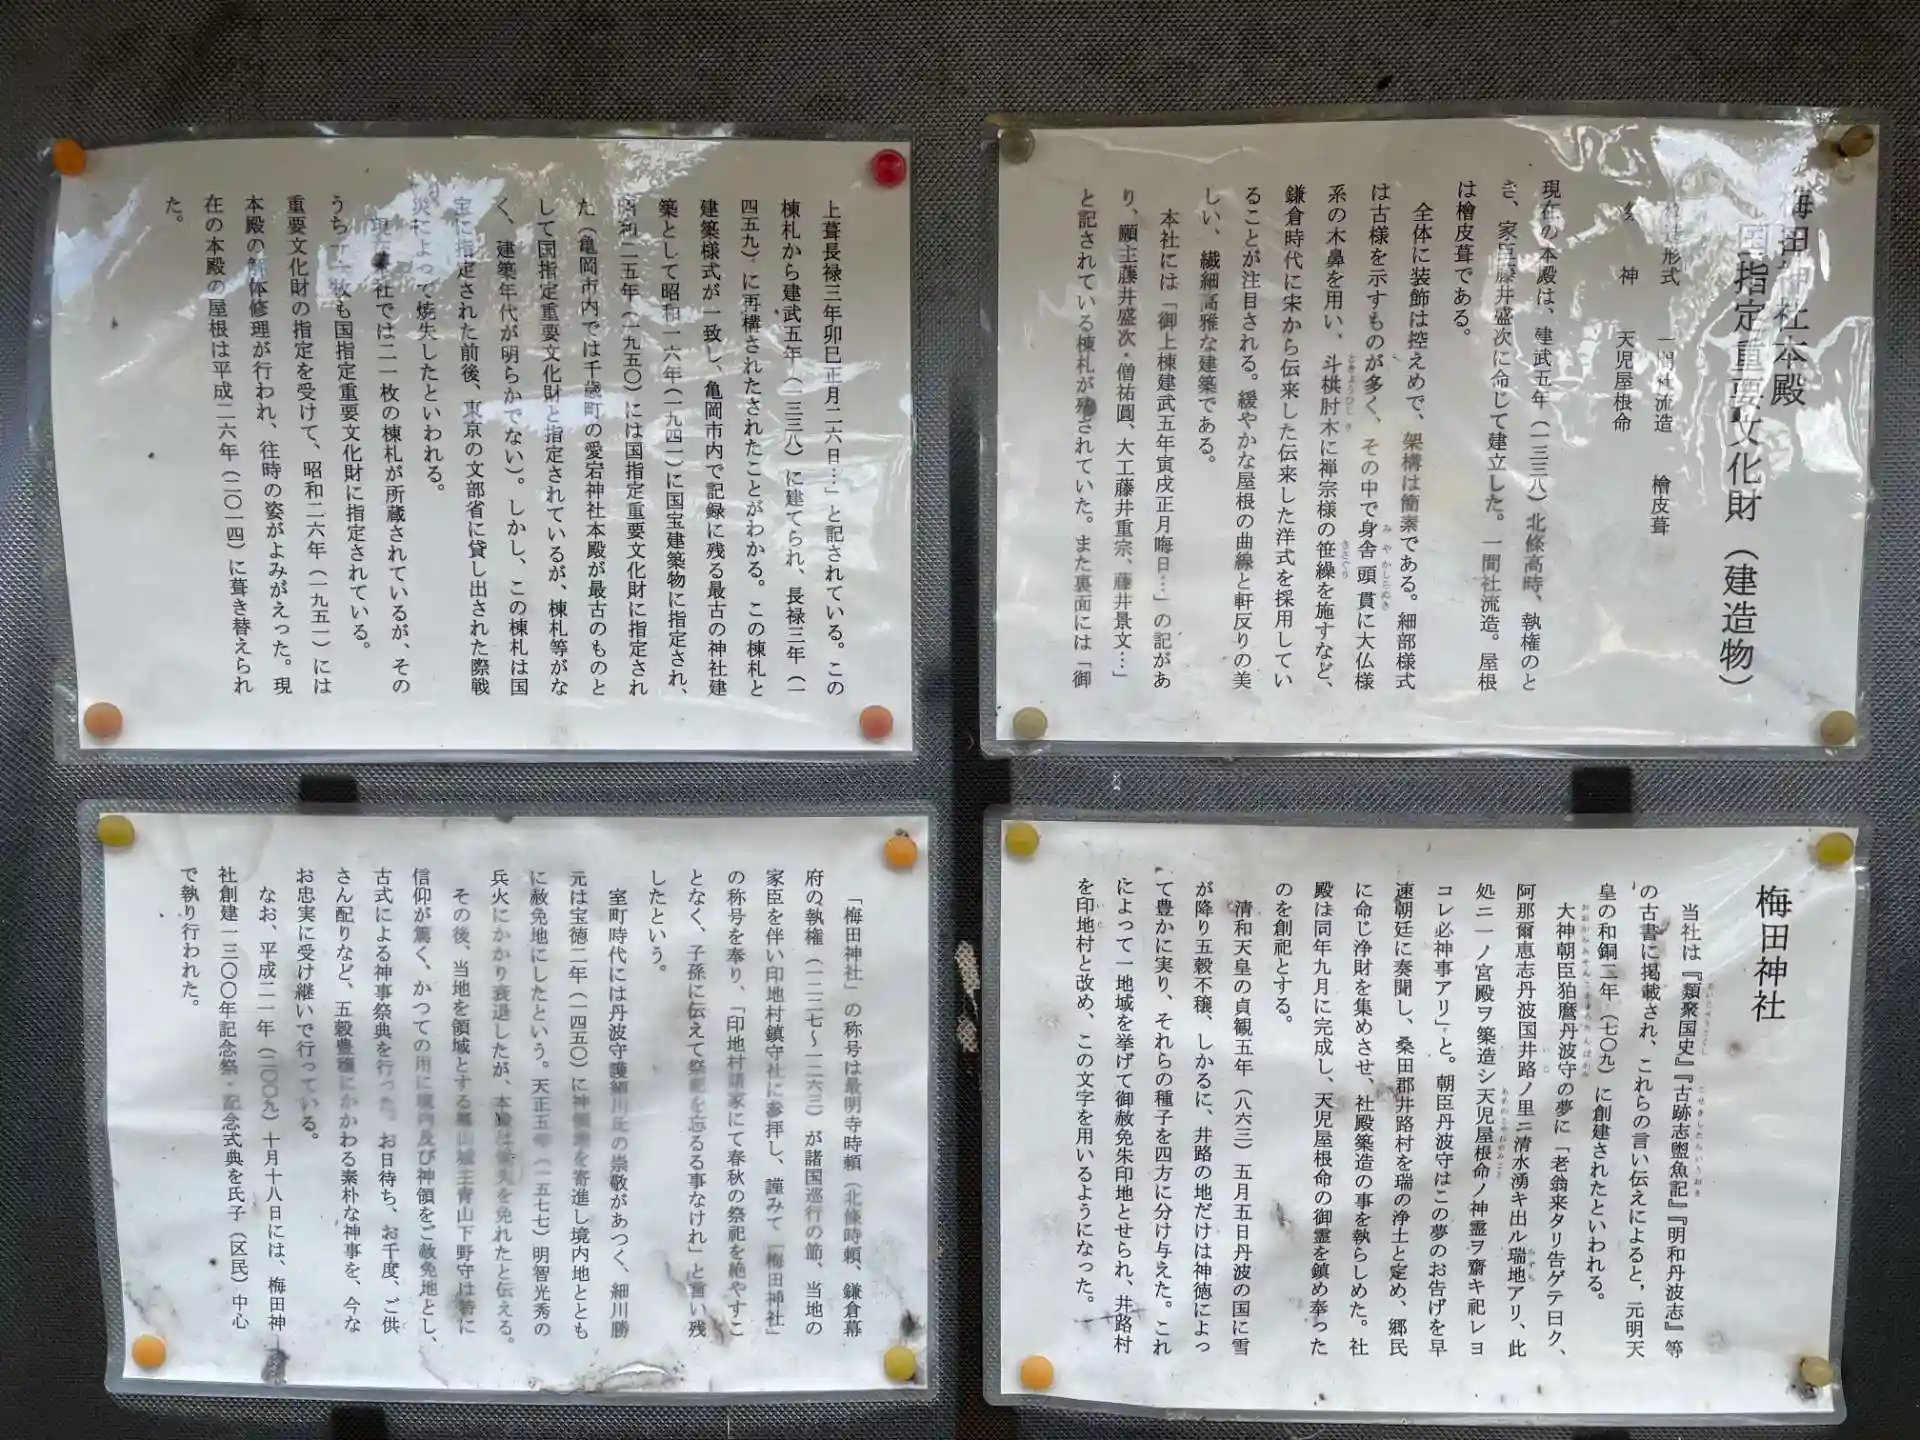 梅田神社本殿
国指定重要文化財（建造物）
形式　一間社流造　檜皮葺
神　天児屋根命
現在の本殿は、建武五年（一三三八）北條高時、執権のと
き、家臣藤井盛次に命じて建立した。一間社流造。屋根
は檜皮葺である。
全体に装飾は控えめで、架構は簡素である。細部様式
は古様を示すものが多く、その中で身舎頭貫に大仏様
系の木鼻を用い、斗栱肘木に禅宗様の笹繰を施すなど、
鎌倉時代に宋から伝来した伝来した洋式を採用してい
ることが注目される。緩やかな屋根の曲線と軒反りの美
しい、繊細高雅な建築である。
本社には「御上棟建武五年寅戌正月晦日…」の記があ
り、願主藤井盛次・僧祐圓、大工藤井重宗、藤井景文…」
と記されている棟札が残されていた。また裏面には「御
上葺長禄三年卯巳正月二六日…」と記されている。この
棟札から建武五年（一三三八）に建てられ、長禄三年（一
四五九）に再構されたされたことがわかる。この棟札と
建築様式が一致し、亀岡市内で記録に残る最古の神社建
築として昭和一六年（一九四一）に国宝建築物に指定され、
昭和二五年（一九五〇）には国指定重要文化財に指定され
た（亀岡市内では千歳町の愛宕神社本殿が最古のものと
して国指定重要文化財と指定されているが、棟札等がな
く、建築年代が明らかでない）。しかし、この棟札は国
宝に指定された前後、東京の文部省に貸し出された際戦
災によって焼失したといわれる。
現在本社では二一枚の棟札が所蔵されているが、その
うち一一枚も国指定重要文化財に指定されている。
重要文化財の指定を受けて、昭和二六年（一九五一）には
本殿の解体修理が行われ、往時の姿がよみがえった。現
在の本殿の屋根は平成二六年（二〇一四）に葺き替えられ
た。
梅田神社
当社は『類聚国史』『古跡志盥魚記』『明和丹波志』等
の古書に掲載され、これらの言い伝えによると，元明天
皇の和銅二年（七〇九）に創建されたといわれる。
大神朝臣狛麿丹波守の夢に「老翁来タリ告ゲテ曰ク、
阿那爾恵志丹波国井路ノ里ニ清水湧キ出ル瑞地アリ、此
処ニ一ノ宮殿ヲ築造シ天児屋根命ノ神霊ヲ齋キ祀レヨ
コレ必神事アリ」と。朝臣丹波守はこの夢のお告げを早
速朝廷に奏聞し、桑田郡井路村を瑞の浄土と定め、郷民
に命じ浄財を集めさせ、社殿築造の事を執らしめた。社
殿は同年九月に完成し、天児屋根命の御霊を鎮め奉った
のを創祀とする。
清和天皇の貞観五年（八六三）五月五日丹波の国に雪
が降り五穀不穣、しかるに、井路の地だけは神徳によっ
て豊かに実り、それらの種子を四方に分け与えた。これ
によって一地域を挙げて御赦免朱印地とせられ、井路村
を印地村と改め、この文字を用いるようになった。
「梅田神社」の称号は最明寺時頼（北條時頼、鎌倉幕
府の執権（一二二七～一二六三）が諸国巡行の節、当地の
家臣を伴い印地村鎮守社に参拝し、謹みて「梅田神社」
の称号を奉り、「印地村諸家にて春秋の祭祀を絶やすこ
となく、子孫に伝えて祭祀を忘るる事なけれ」と言い残
したという。
室町時代には丹波守護細川氏の崇敬があつく、細川勝
元は宝徳二年（一四五〇）に神領地を寄進し境内地ととも
に赦免地にしたという。天正五年（一五七七）明智光秀の
兵火にかかり衰退したが、本殿は焼失を免れたと伝える。
その後、当地を領域とする亀山城主青山下野守は特に
信仰が篤く、かつての用に境内及び神領をご赦免地とし、
古式による神事祭典を行った。お日待ち、お千度、ご供
さん配りなど、五穀豊穣にかかわる素朴な神事を、今な
お忠実に受け継いで行っている。
なお、平成二一年（二〇〇九）十月十八日には、梅田神
社創建一三〇〇年記念祭・記念式典を氏子（区民）中心
で執り行われた。